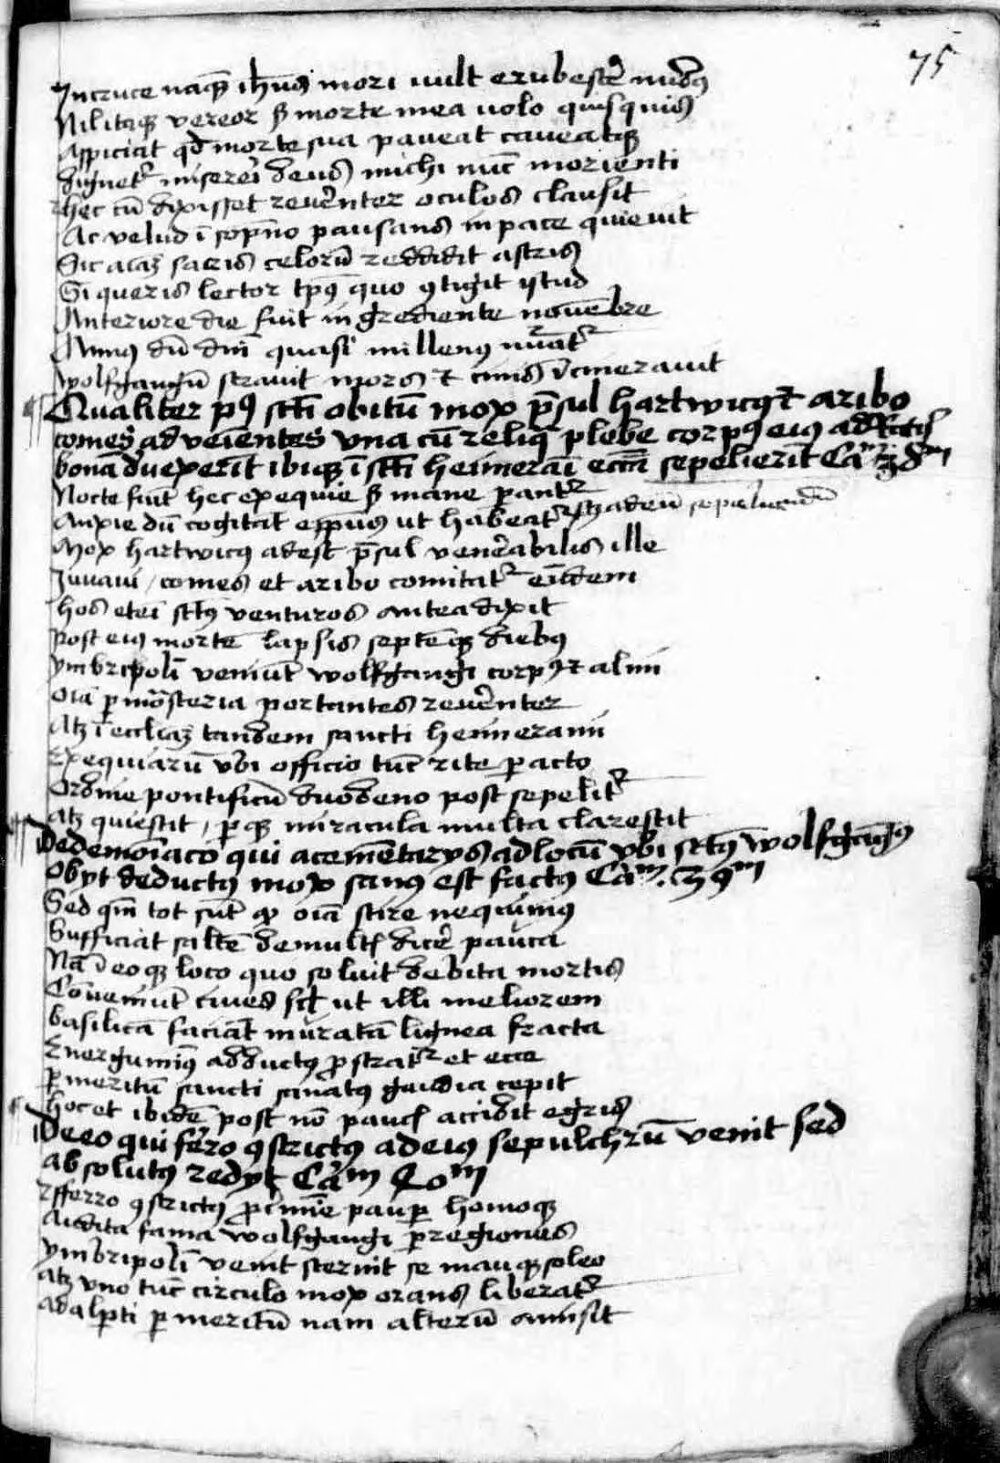 75
In cruce naq ihus mori uult erubescere nudus
Nil itaq vereor s morte mea uolo quisquis
Aspiciat qd morte sua paveat caveatq
dignetr misereri deus michi nuc morienti
hec cu dixisset reverenter oculos clausit
Ac velud i sopno pausans in pace quievit
Sic aiaz sacris celoru reddidit astris
Si queris lector tps quo 9tigit istud
Anteriore die fuit ingrediente novebre
Annus du dni quasi millenus
wolfgangu stravit mors et cinis icineravit
Qualiter p9 scti obitu mox psul hartwicq et aribo
comes advenientes una cu reliq plebe corp9 eius ad
bona duxerit ibiq i scti heimerai eccia sepelierit Cam 38m
Nocte fuit hec exequie s mane parantr
Anxie du cogitat episcopus ut habeatr ad eu sepeliendu
Mox hartwicq adest psul venerabilis ille
Juvavi, comes et aribo comitatr eundem
hos etei sct9 venturos antea dixit
Post ei9 morte lapsis septeq dieb9
ymbripoli veniut wolfgangi corp9 et almi
oia p monasteria portantes reverenter
Atz i ecclesiaz tandem sancti heimerami
Exequiaru ubi officio tuc rite pacto
Ordine pontificu duodeno post sepelitr
atz quiescit, p que miracula multa clarescit
De demoiaco qui a cemetarys ad locu ubi sct9 wolfgag9
obyt deduct9 mox san9 est fact9 Cam. 39m
Sed qm tot sut q oia scire nequimus
Sufficiat salte de multis dicere pauca
Na i eoq loco quo soluit debita mortis
Coveniut cives sct ut illi meliorem
basilica faciat murata lignea fracta
Energumin9 adduct9 pstratr et ecce
p meritu sancti sanat9 gaudia cepit
hoc et ibide post no paucis accidit egris
De eo qui ferro 9strictus ad ei9 sepulchru venit sed
absolutus redyt Cam 40m
ferro 9strict9 pcimie paup homoq
Audita fama wolfgangi p regiones
ymbripoli venit sternit se mauq soleo
atz uno tuc circulo mox orans liberatr
Adalpti p meritu nam alteru amisit